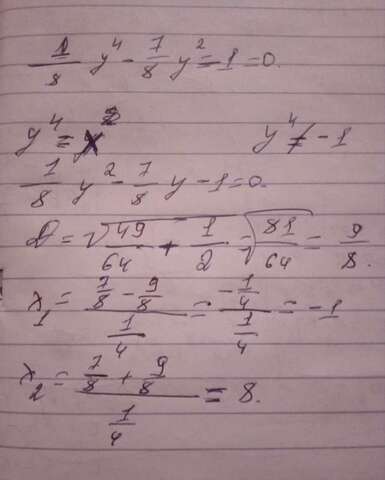 1/8 y⁴ - 7/8 y² - 1 = 0.
y⁴ = y² y⁴ ≠ -1
1/8 y² - 7/8 y - 1 = 0.
D = √(49/64 + 1/2) = √(81/64) = 9/8.
x₁ = (7/8 - 9/8)/(1/4) = (-1/4)/(1/4) = -1
x₂ = (7/8 + 9/8)/(1/4) = 8.